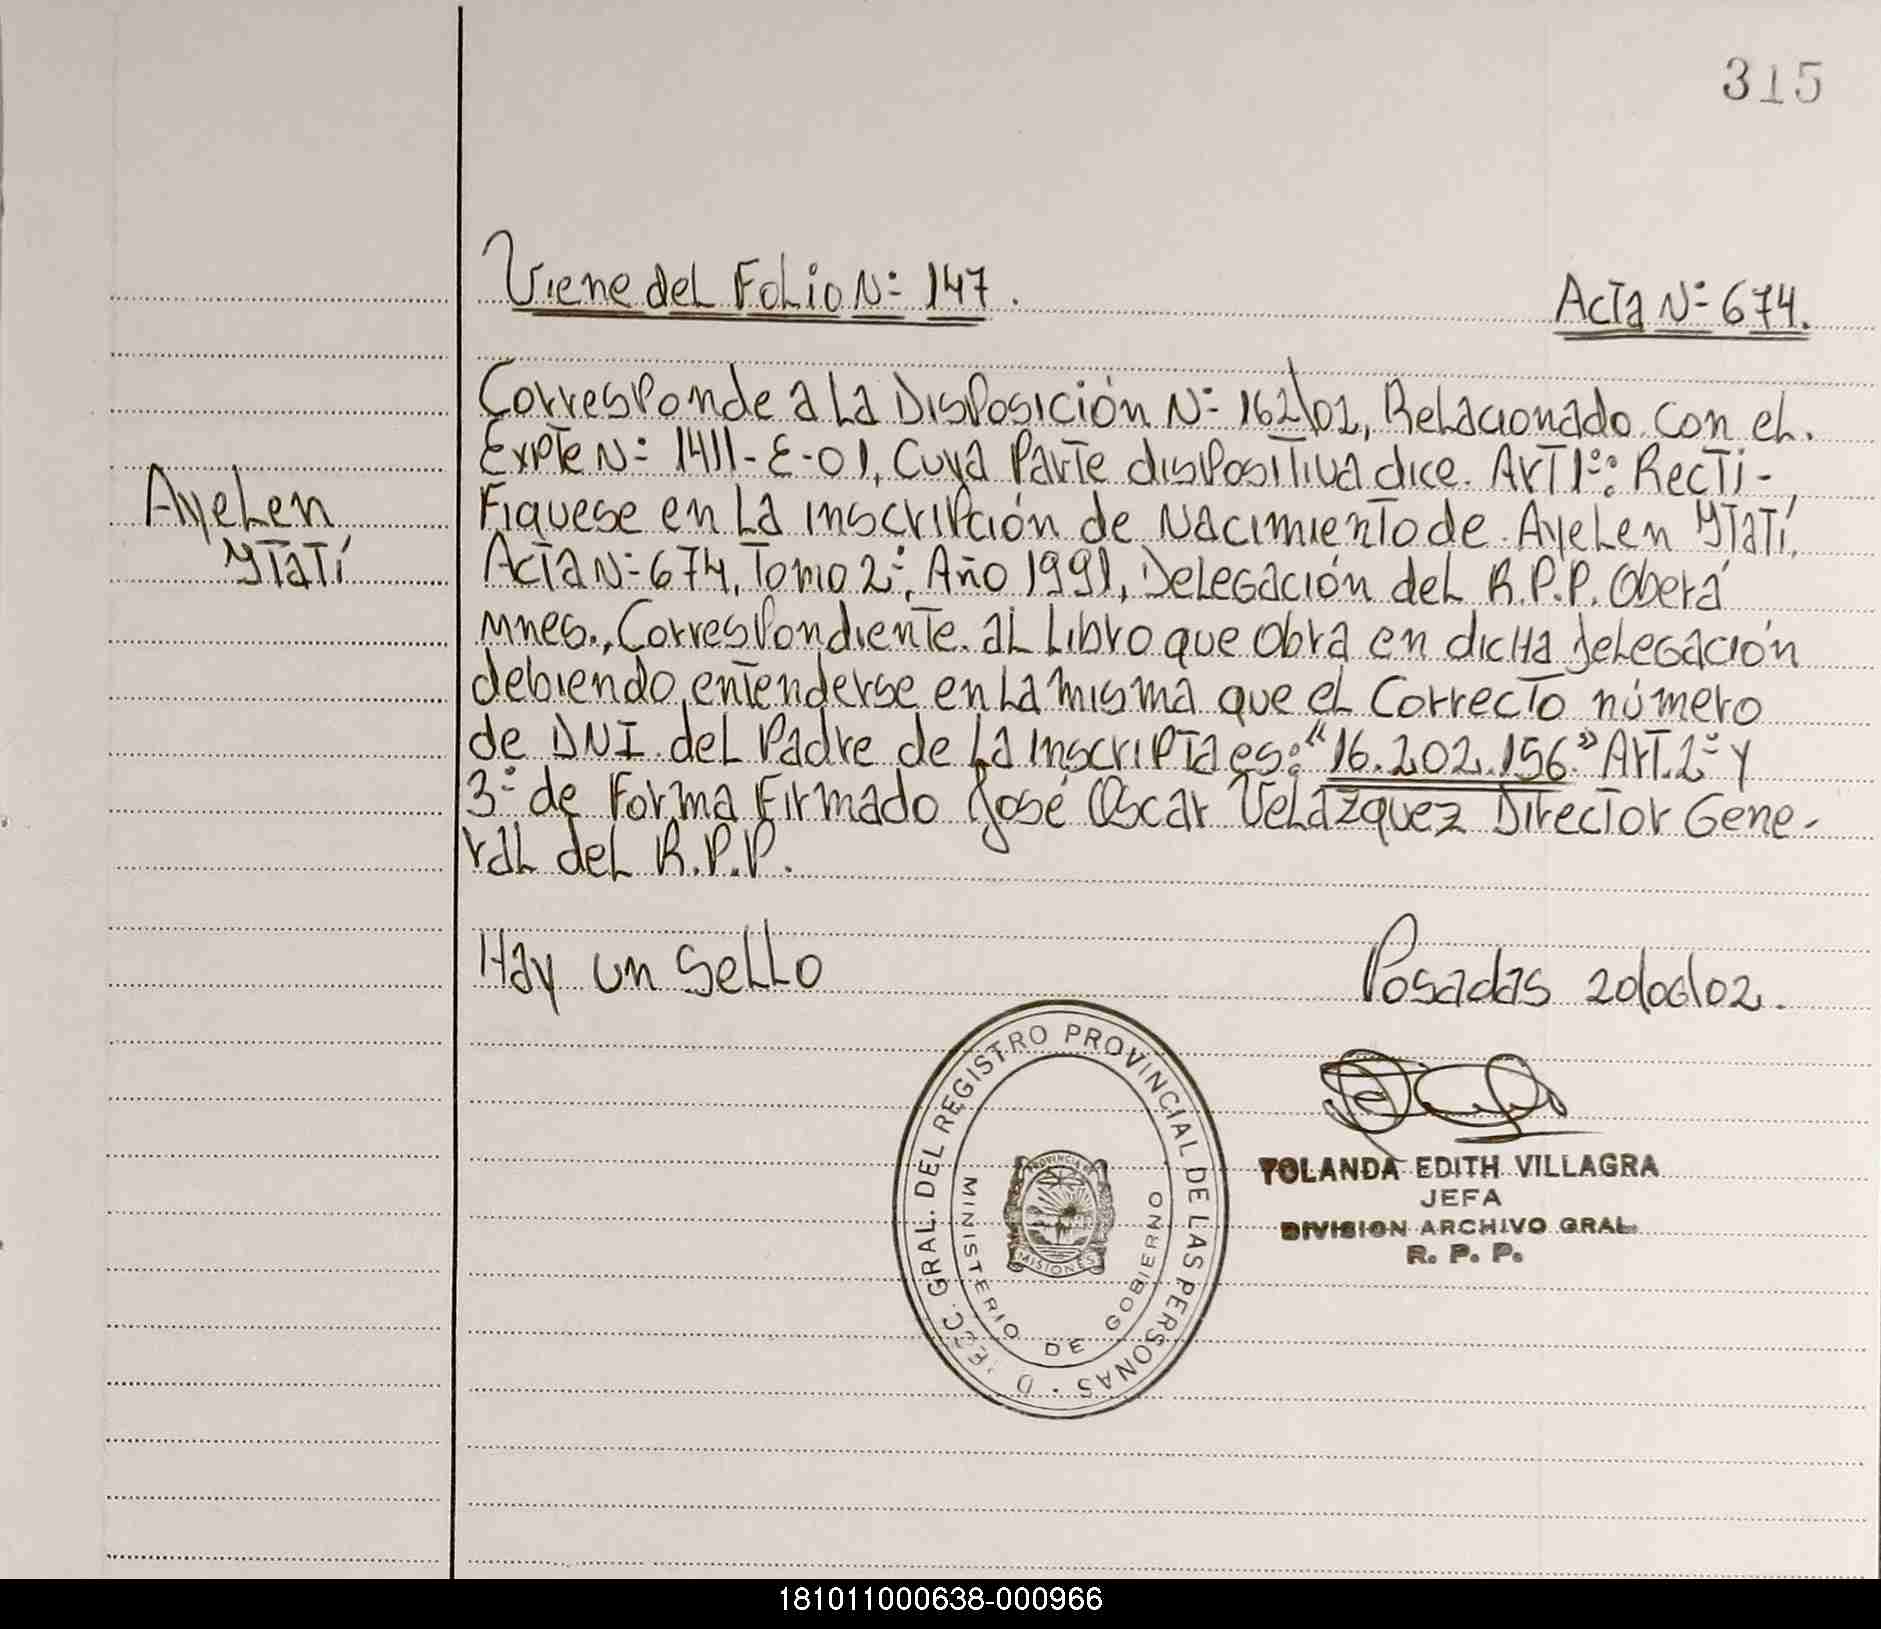 315
Viene del Folio Nº 147.
Acta Nº 674.
Corresponde a la Disposición Nº 162/02, Relacionado con el.
Expte Nº 1411-E-01, Cuya Parte dispositiva dice. Art 1º: Recti-
Ayelen
Ytatí
fiquese en la inscripción de nacimiento de Ayelen Ytatí,
Acta Nº 674, Tomo 2º, Año 1991, Delegación del R.P.P. Oberá
Mnes., Correspondiente al Libro que obra en dicha delegación
debiendo entenderse en la misma que el Correcto número
de DNI del Padre de la inscripta es: "16.202.156." Art. 2º y
3º de Forma Firmado José Oscar Velázquez Director Gene-
ral del R.P.P.
Hay un Sello
Posadas 20/06/02.
GRAL. DEL REGISTRO PROVINCIAL DE LAS PERSONAS
MINISTERIO DE GOBIERNO
MISIONES
YOLANDA EDITH VILLAGRA
JEFA
DIVISION ARCHIVO GRAL.
R. P. P.
181011000638-000966